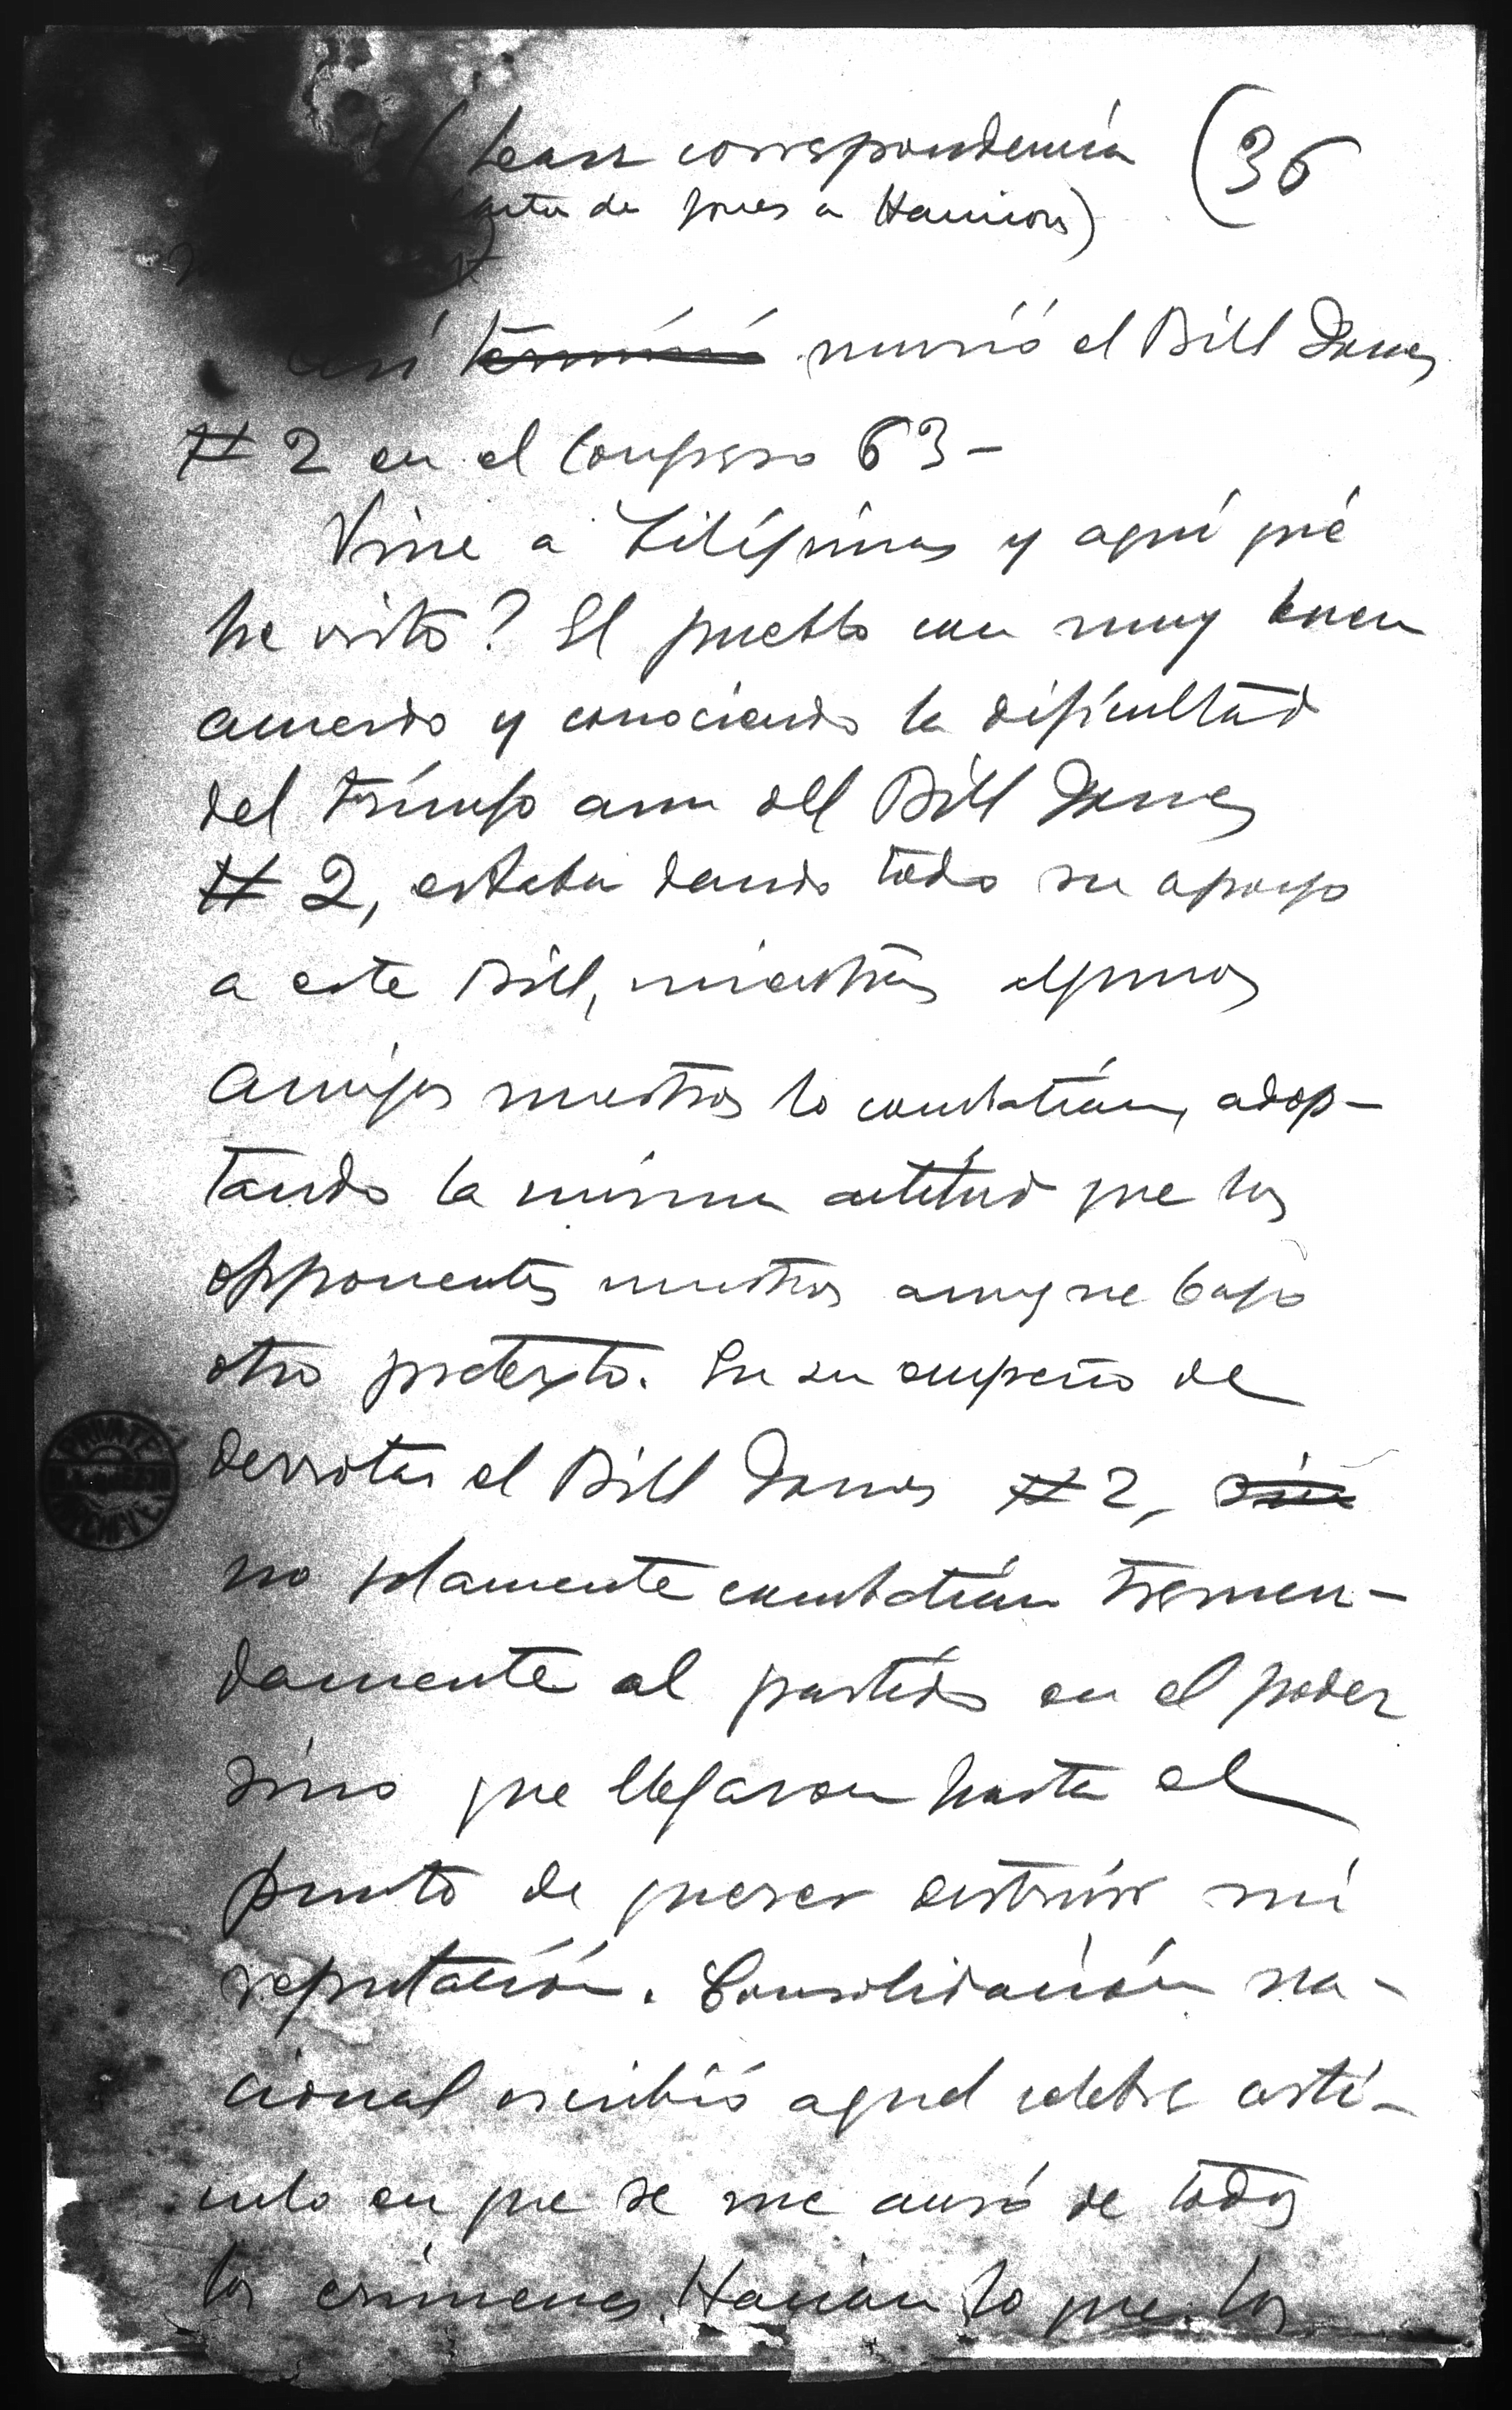 ( Lease correspondencia (36
carta de Jones a Harrison)
Así terminó murió el Bill Jones
# 2 en el Congreso 63-
Vine a Filipinas y aquí qué
he visto? El pueblo con muy buen
acuerdo y conociendo la dificultad
del triunfo aun del Bill Jones
# 2, estaba dando todo su apoyo
a este Bill, mientras algunos
amigos nuestros lo combatían, adop-
tando la misma actitud que los
opponentes nuestros aunque bajo
otro pretexto. En su empeño de
derrotar el Bill Jones #2,
no solamente combatían tremen-
damente al partido en el poder
sino que llegaron hasta el
punto de querer destruir mi
reputación. Consolidación na-
cional escribió aquel celebre artí-
culo en que se me acusó de todos
los crímenes. Hacían lo que los
PRIVATE